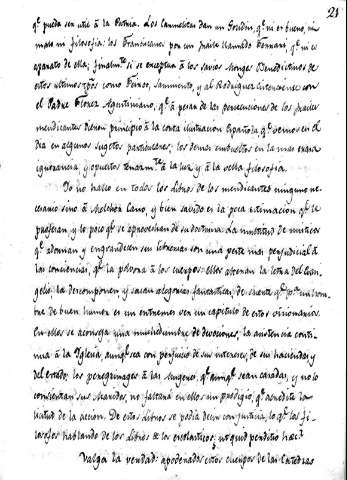 21
q.e pueda ser util â la Patria. Los Carmelitas dan un Goudin, q.e ni es bueno, ni
malo ni filosofia: los Franciscanos por un fraile llamado Ferrari, q.e ni es
aparato de ella; finalm.te si se exceptua â los savios Monges Benedictinos de
estos ultimos como Feixoo, Sarmiento, y al Rodriguez Cisterciense con
el Padre Florez Agustiniano, q.e â pesar de las persecuciones de los frailes
mendicantes dieron principio â la corta ilustracion Española q.e vemos en el
dia en algunos sugetos particulares; los demas embueltos en la mas
ignorancia y opuestos â la luz y â la vella filosofia.
Yo no hallo en todos los libros de los mendicantes ninguno ne-
cesario sino â Melchor Cano, y bien savido es la poca estimacion q.e le
y lo poco q.e se aprovechan de su doctrina. La multitud de misticos
q.e adornan y engrandecen sus librerias son una peste mas perjudicial â
las conciencias, q.e la polvora â los cuerpos: ellos alteran la letra del Evan-
gelio, la descomponen y sacan alegorias fantasticas, de suerte q.e p.a un hom-
bre de buen humor es un entremes ver un capitulo de estos visionarios.
En ellos se aconseja una muchedumbre de devociones, la asistencia conti-
nua â la Iglesia, aunq.e sea con perjuicio de sus intereses, de sus haciendas y
del estado; los peregrinages â las Mugeres, q.e aunq.e sean casadas, y no lo
consientan sus Maridos, no faltará en ellos un prodigio, q.e acredite la
virtud de la accion. De estos libros se podia decir con justicia, lo q.e los fi-
losofos hablando de los libros de los escolasticos; ut quid perditio hæc?
Valga la verdad: apoderados estos cuerpos de las Catedras